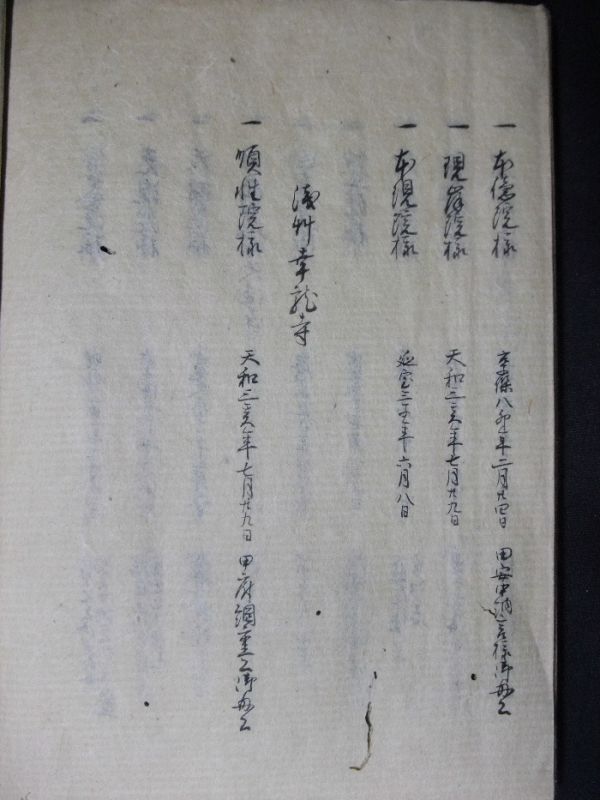 一 本徳院様 享保八卯年二月廿四日 田安中納言様御母公
一 現岸院様 天和三亥年七月廿九日
一 本現院様 延宝三卯年六月八日
浅艸幸龍寺
一 順性院様 天和三亥年七月廿九日 甲府綱重公御母公